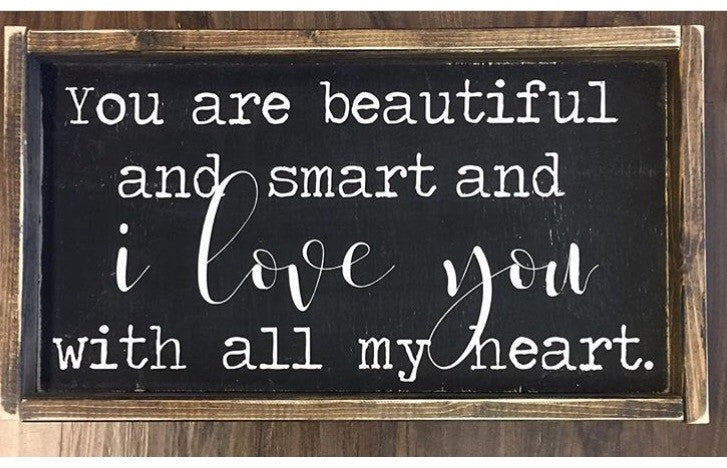 You are beautiful
and smart and
i love you
with all my heart.